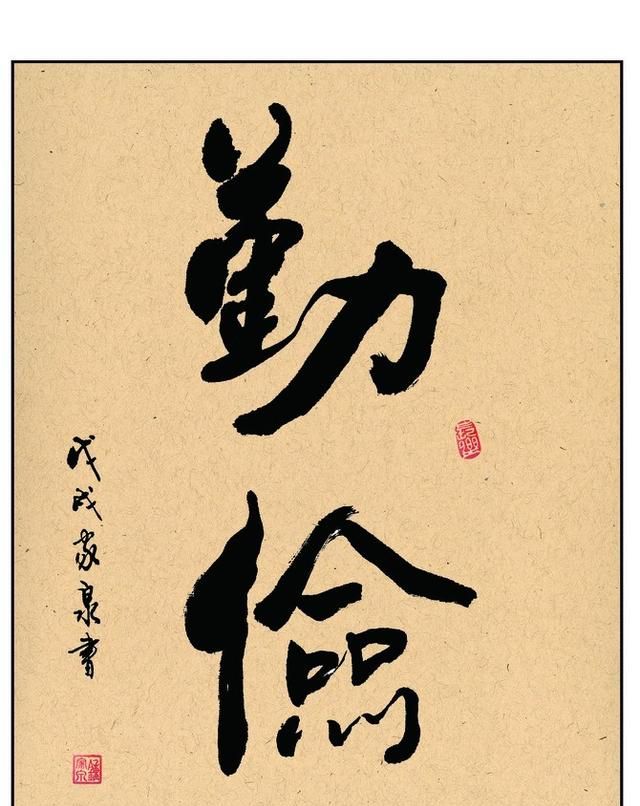 勤儉
戊戌家泉書